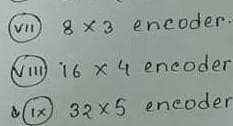 (VII) 8 × 3 encoder.
(VIII) 16 × 4 encoder
(IX) 32 × 5 encoder